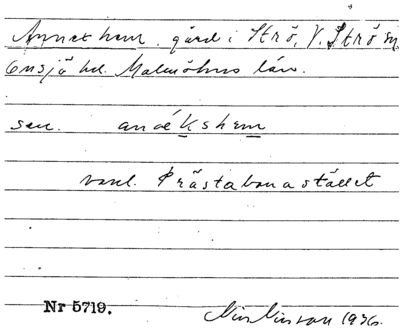 Annekhem. gård i Strö, V. Strö sn,
Onsjö hd. Malmöhus län.
sen. anékshem
vanl. Prästabonastället
Nr 5719.
1936.